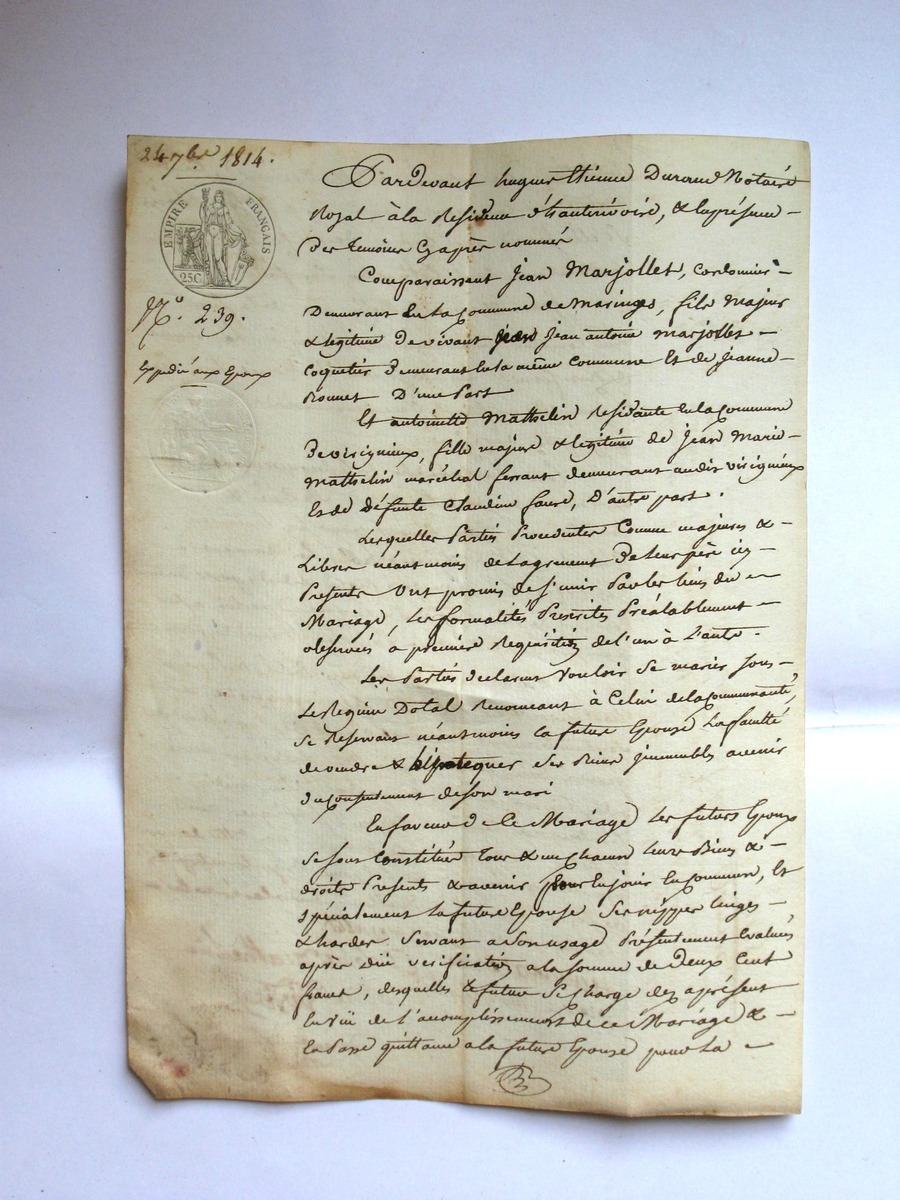 24 7bre 1814.
EMPIRE FRANÇAIS
25C
No. 239.
Expedié aux Epoux
Pardevant hugues Etienne Durand Notaire
Royal à la Residence d'hauterivoire, & en présence
Des temoins Cyaprès nommés
Comparaissent Jean Marjollet, Cordonnier
Demeurant En la Commune de Maringes, fils Majeur
& legitime De vivant Jean antoine Marjollet
Coquetier Demeurant En la même Commune Et de Jeanne
D'une Part
Et antoinette Mathelin Residante En la Commune
De virigneux, fille majeure & legitime de Jean Marie
Mathelin maréchal ferrant demeurant audit virigneux
Et de Défunte Claudine faure, D'autre part.
Lesquelles Parties Procedentes Comme majeures &
Libres néantmoins de Lagrement De leurs père icy
Presents Ont promis de s'unir Par les liens du
Mariage, Les formalités Prescrites Préalablement
observées à première Requisition de l'un à L'autre.
Les Parties declarent Vouloir Se marier Sous
Le Regime Dotal Renonceant à Celui de la Communauté,
Se Reservant néantmoins la future Epouse La faculté
de vendre & hipotequer Ses Biens immeubles avenir
du consentement de son mari
En faveur de Ce Mariage Les futurs Epoux
Se sont Constitués Tous & un Chacun Leurs Biens &
droits Presents & avenir pour En jouir En Commun, Et
spécialement La future Epouse Ses nippes linges
& hardes Servant a Son usage Présentement Evalués
après Düe verification a la somme de Deux Cent
francs, desquelles Le futur Se Charge dez aprésent
En vüe de l'accomplissement de ce Mariage &
En Passe quittance a la future Epouse pour La